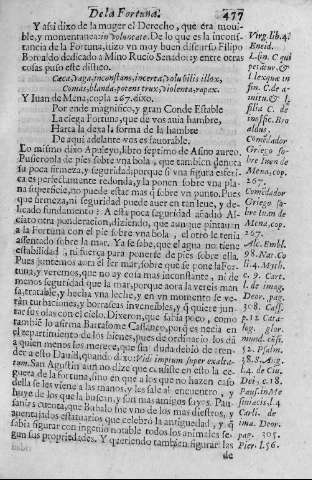 De la Fortuna. 477
Y assi dixo de la muger el Derecho, que era moui-
ble, y momentanea in voluntate. De lo que es la incons-
tancia de la Fortuna, hizo vn muy buen discurso Filipo
Beroaldo dedicado a Mino Rucio Senador: y entre otras
cosas puso este distico.
Cæca, vaga, inconstans, incerta, volubilis illex,
Comas, blanda, potens trux, violenta, rapax.
Y Iuan de Mena, copla 267. dixo.
Por ende magnifico, y gran Conde Estable
La ciega Fortuna, que de vos auia hambre,
Harta la dexa la forma de la hambre
De aqui adelante vos es fauorable.
Lo mismo dixo Apuleyo, libro septimo de Asino aureo.
Pusieronla de pies sobre vna bola, que tambien denota
su poca firmeza, y seguridad; porque si vna figura esferi-
ca es perfectamente redonda, y la ponen sobre vna pla-
na superficie, no puede estar mas que sobre vn punto. Pues
que firmeza, ni seguridad puede auer en tan leue, y de-
licado fundamento? A esta poca seguridad añadio Al-
ciato otra ponderacion, diziendo, que aunque pintauan
a la Fortuna con el pie sobre vna bola, el otro le tenia
assentado sobre la mar. Ya se sabe, que el agua no tiene
estabilidad, ni fuerça para ponerse de pies sobre ella.
Pues juntemos aora el ser mar, sobre que se pone la For-
tuna, y veremos, que no ay cosa mas inconstante, ni de
menos seguridad que la mar, porque aora la vereis man-
sa, tratable, y hecha vna leche, y en vn momento se ve-
rán turbaciones, y borrascas inuencibles, y que quiere jun-
tar sus olas con el cielo. Dixeron, que sabia poco, como
tambien lo afirma Bartolome Cassaneo, porque es necia en
el repartimiento de los bienes, pues de ordinario los da
a quien menos los merece, que sin duda debió de aten-
der a esto Dauid, quando dixo: Vidi impium super exalta-
tum. San Agustin aun no dize que consiste en esto la ce-
guera de la fortuna, sino en que a los que no hazen caso
della se les viene a las manos, y les sale al encuentro, y
huye de los que la buscan, y son mas amigos suyos. Pau-
sanias cuenta, que Bubalo fue vno de los mas diestros, y
auentajados estatuarios que celebró la antiguedad, y que
sabia figurar con ingenio notable todos los animales se-
gun sus propriedades. Y queriendo tambien figurar las
de
Virg. lib. 4.
Eneid.
C. de a-
Comedador
Griego so-
bre Iuan de
Mena, cop.
267.
Comedador
Griego so-
bre Iuan de
Mena, cop.
267.
Alc. Embl.
98. Nat. Co
l. 4. Mith.
c. 9. Cart.
l. de imag.
Deor. pag.
308. Cass.
p. 12. Cata-
log. glor.
mund. cōsi.
52. Psalm.
S. Aug.
l. 4. de Ciu.
Dei, c. 18.
Paus. in Me
siniacis, l. 4
Carli. de
ima. Deor.
pag. 305.
Pier. l. 56.